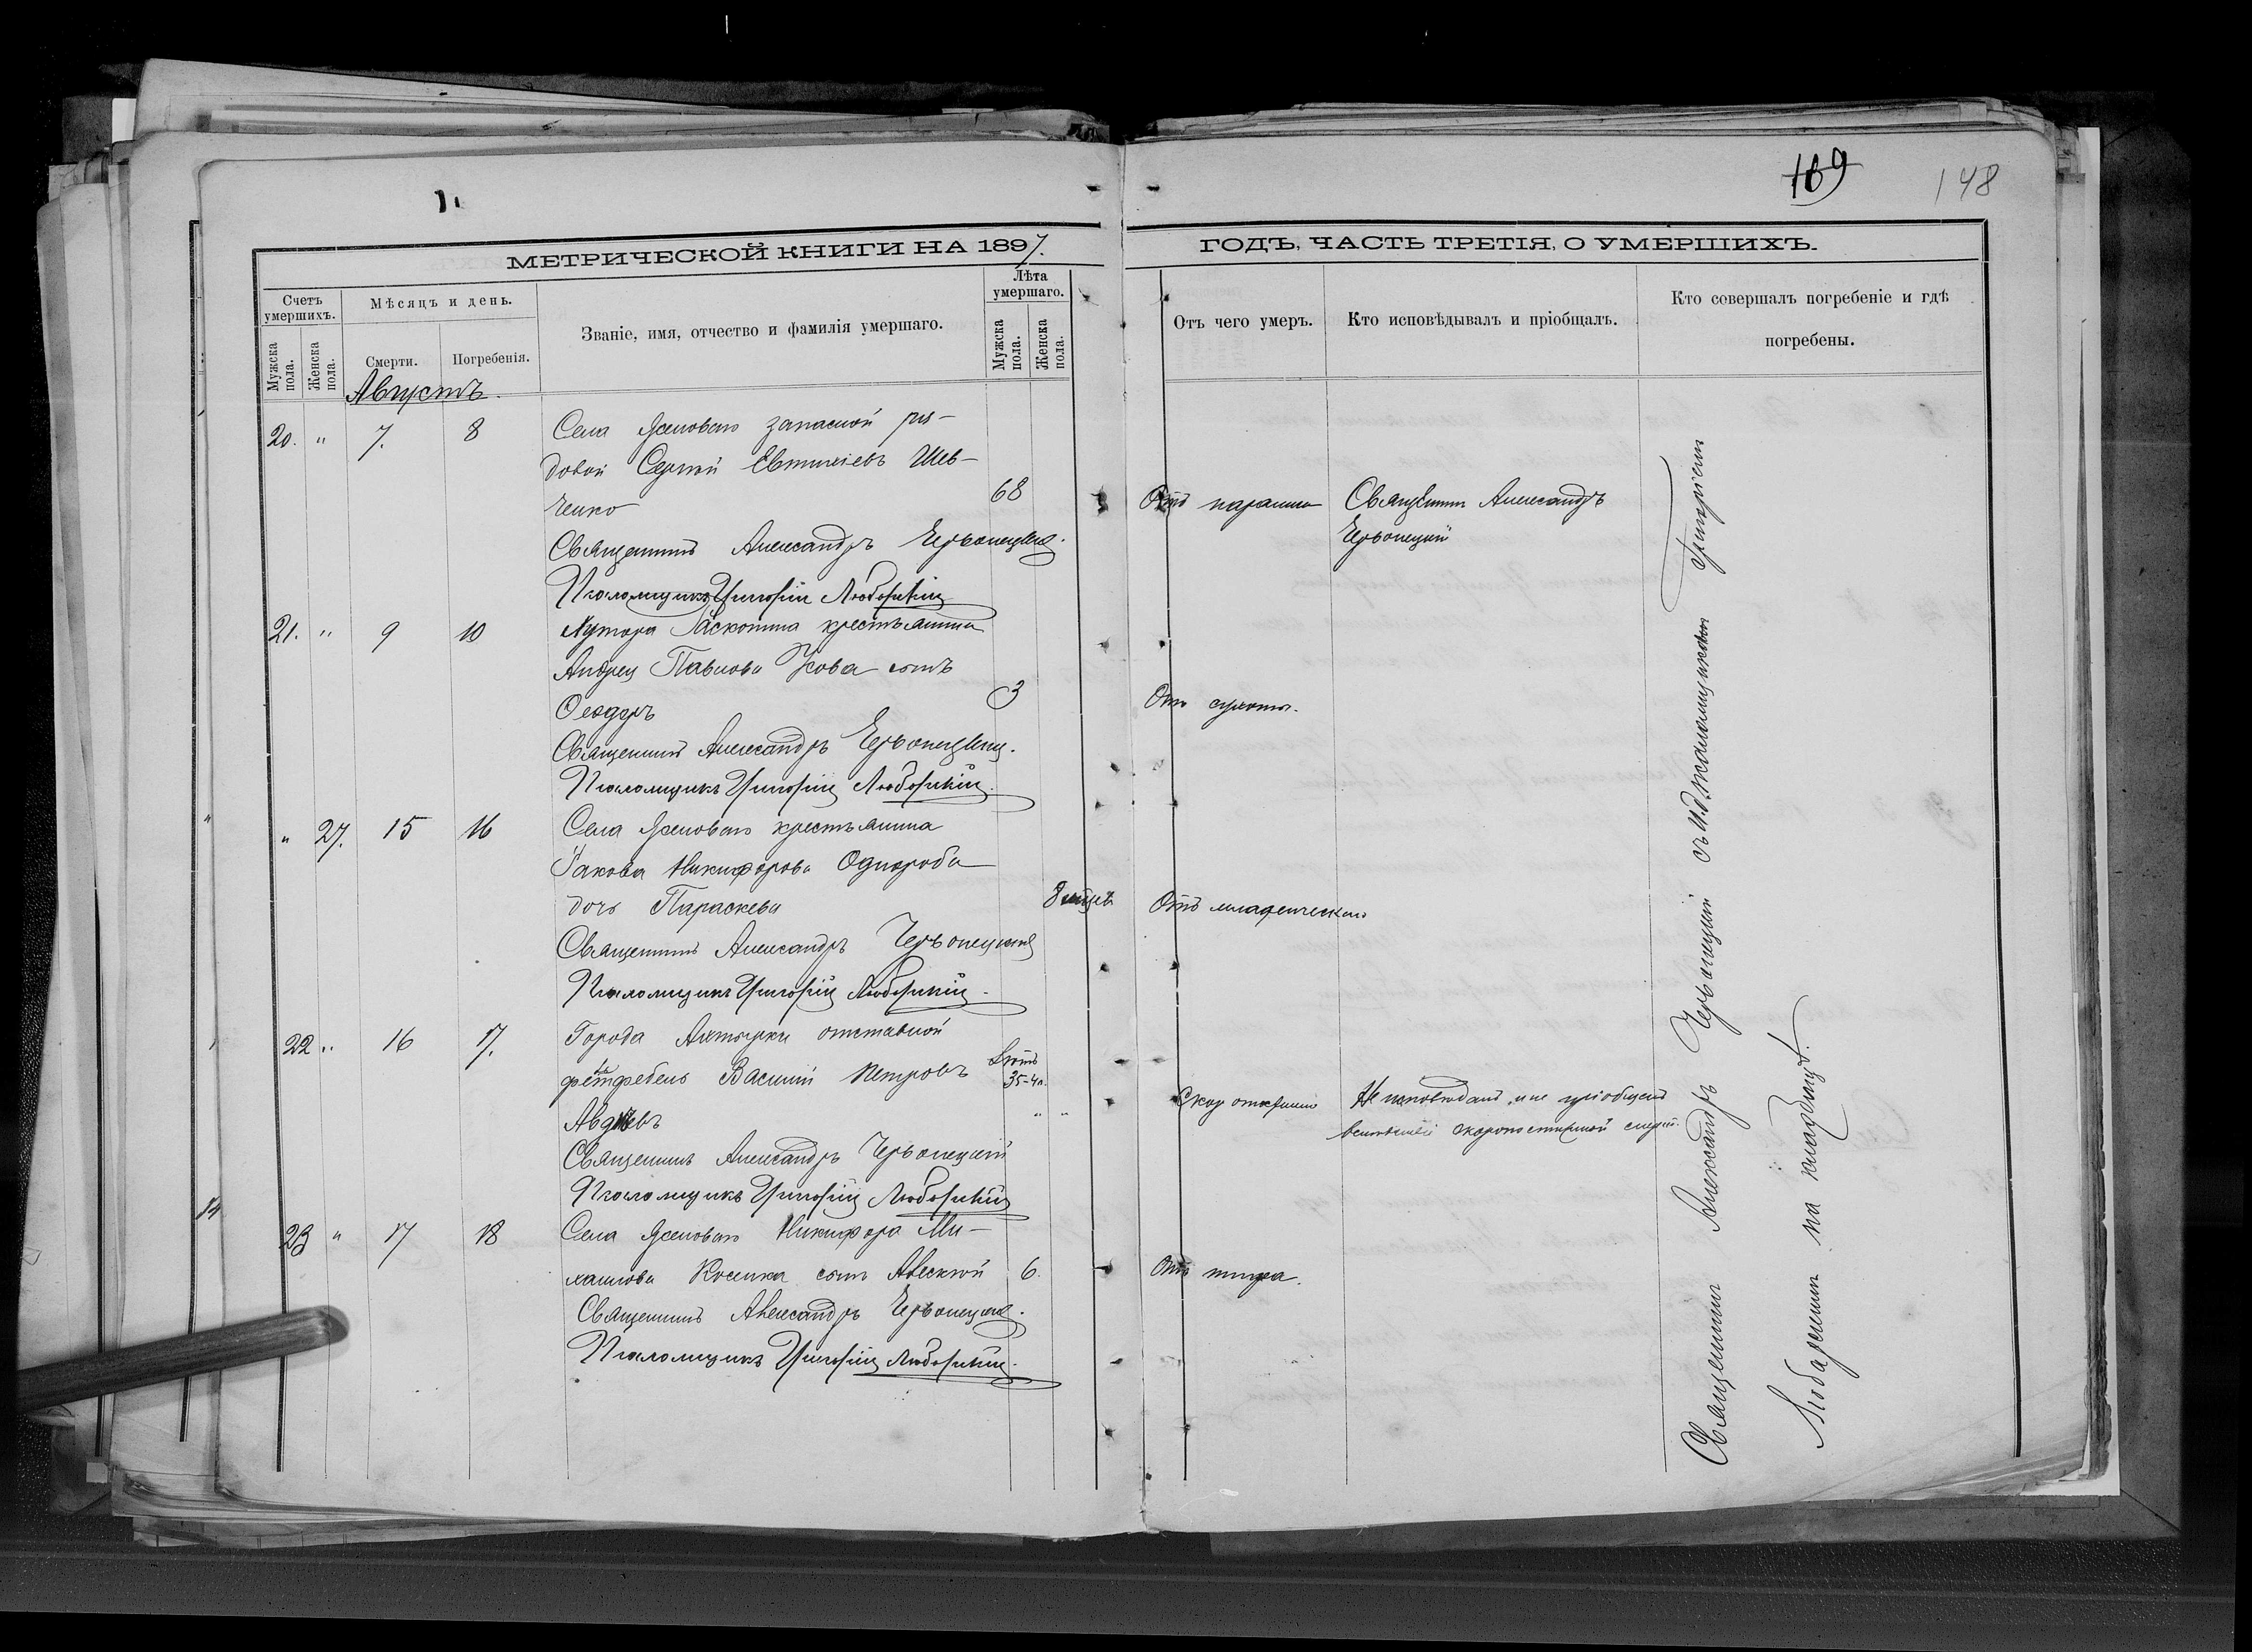 169 148
МЕТРИЧЕСКОЙ КНИГИ НА 1897.
ГОДЪ, ЧАСТЬ ТРЕТІЯ, О УМЕРШИХЪ.
Счетъ умершихъ.
Мужска пола.
Женска пола.
Мѣсяцъ и день.
Смерти.
Погребенія.
Званіе, имя, отчество и фамилія умершаго.
Лѣта умершаго.
Мужска пола.
Женска пола.
Отъ чего умеръ.
Кто исповѣдывалъ и пріобщалъ.
Кто совершалъ погребеніе и гдѣ
погребены.
Августъ.
20. " 7. 8 Села запасной ря-
довой Сергѣй Евтихіевъ Шев-
ченко 68 Отъ Священникъ Александръ
Червонецкій
Священникъ Александръ Червонецкій.
Псаломщикъ Григорій
21. " 9 10 Хутора крестьянина
Андрея Павлова сынъ
Ѳеодоръ 3 Отъ сухоты.
Священникъ Александръ Червонецкій.
Псаломщикъ Григорій
" 27. 15 16 Села крестьянина
Іакова Никифорова Однороба
дочь Параскева 8 мѣсяцев Отъ младенческаго
Священникъ Александръ Червонецкій
Псаломщикъ Григорій
22 " 16 17. Города Ахтырки отставной
фельдфебель Василій Петровъ лѣтъ
35-40
Авдѣевъ " " Не исповѣданъ и не пріобщенъ
скоропостижной смерти.
Священникъ Александръ Червонецкій
Псаломщикъ Григорій
23 " 17 18 Села Никифора Ми-
хаилова сынъ Алексѣй 6. Отъ тифа.
Священникъ Александръ Червонецкій.
Псаломщикъ Григорій
Священникъ Александръ Червонецкій съ И.д. псаломщикомъ Григоріемъ
на кладбищѣ.